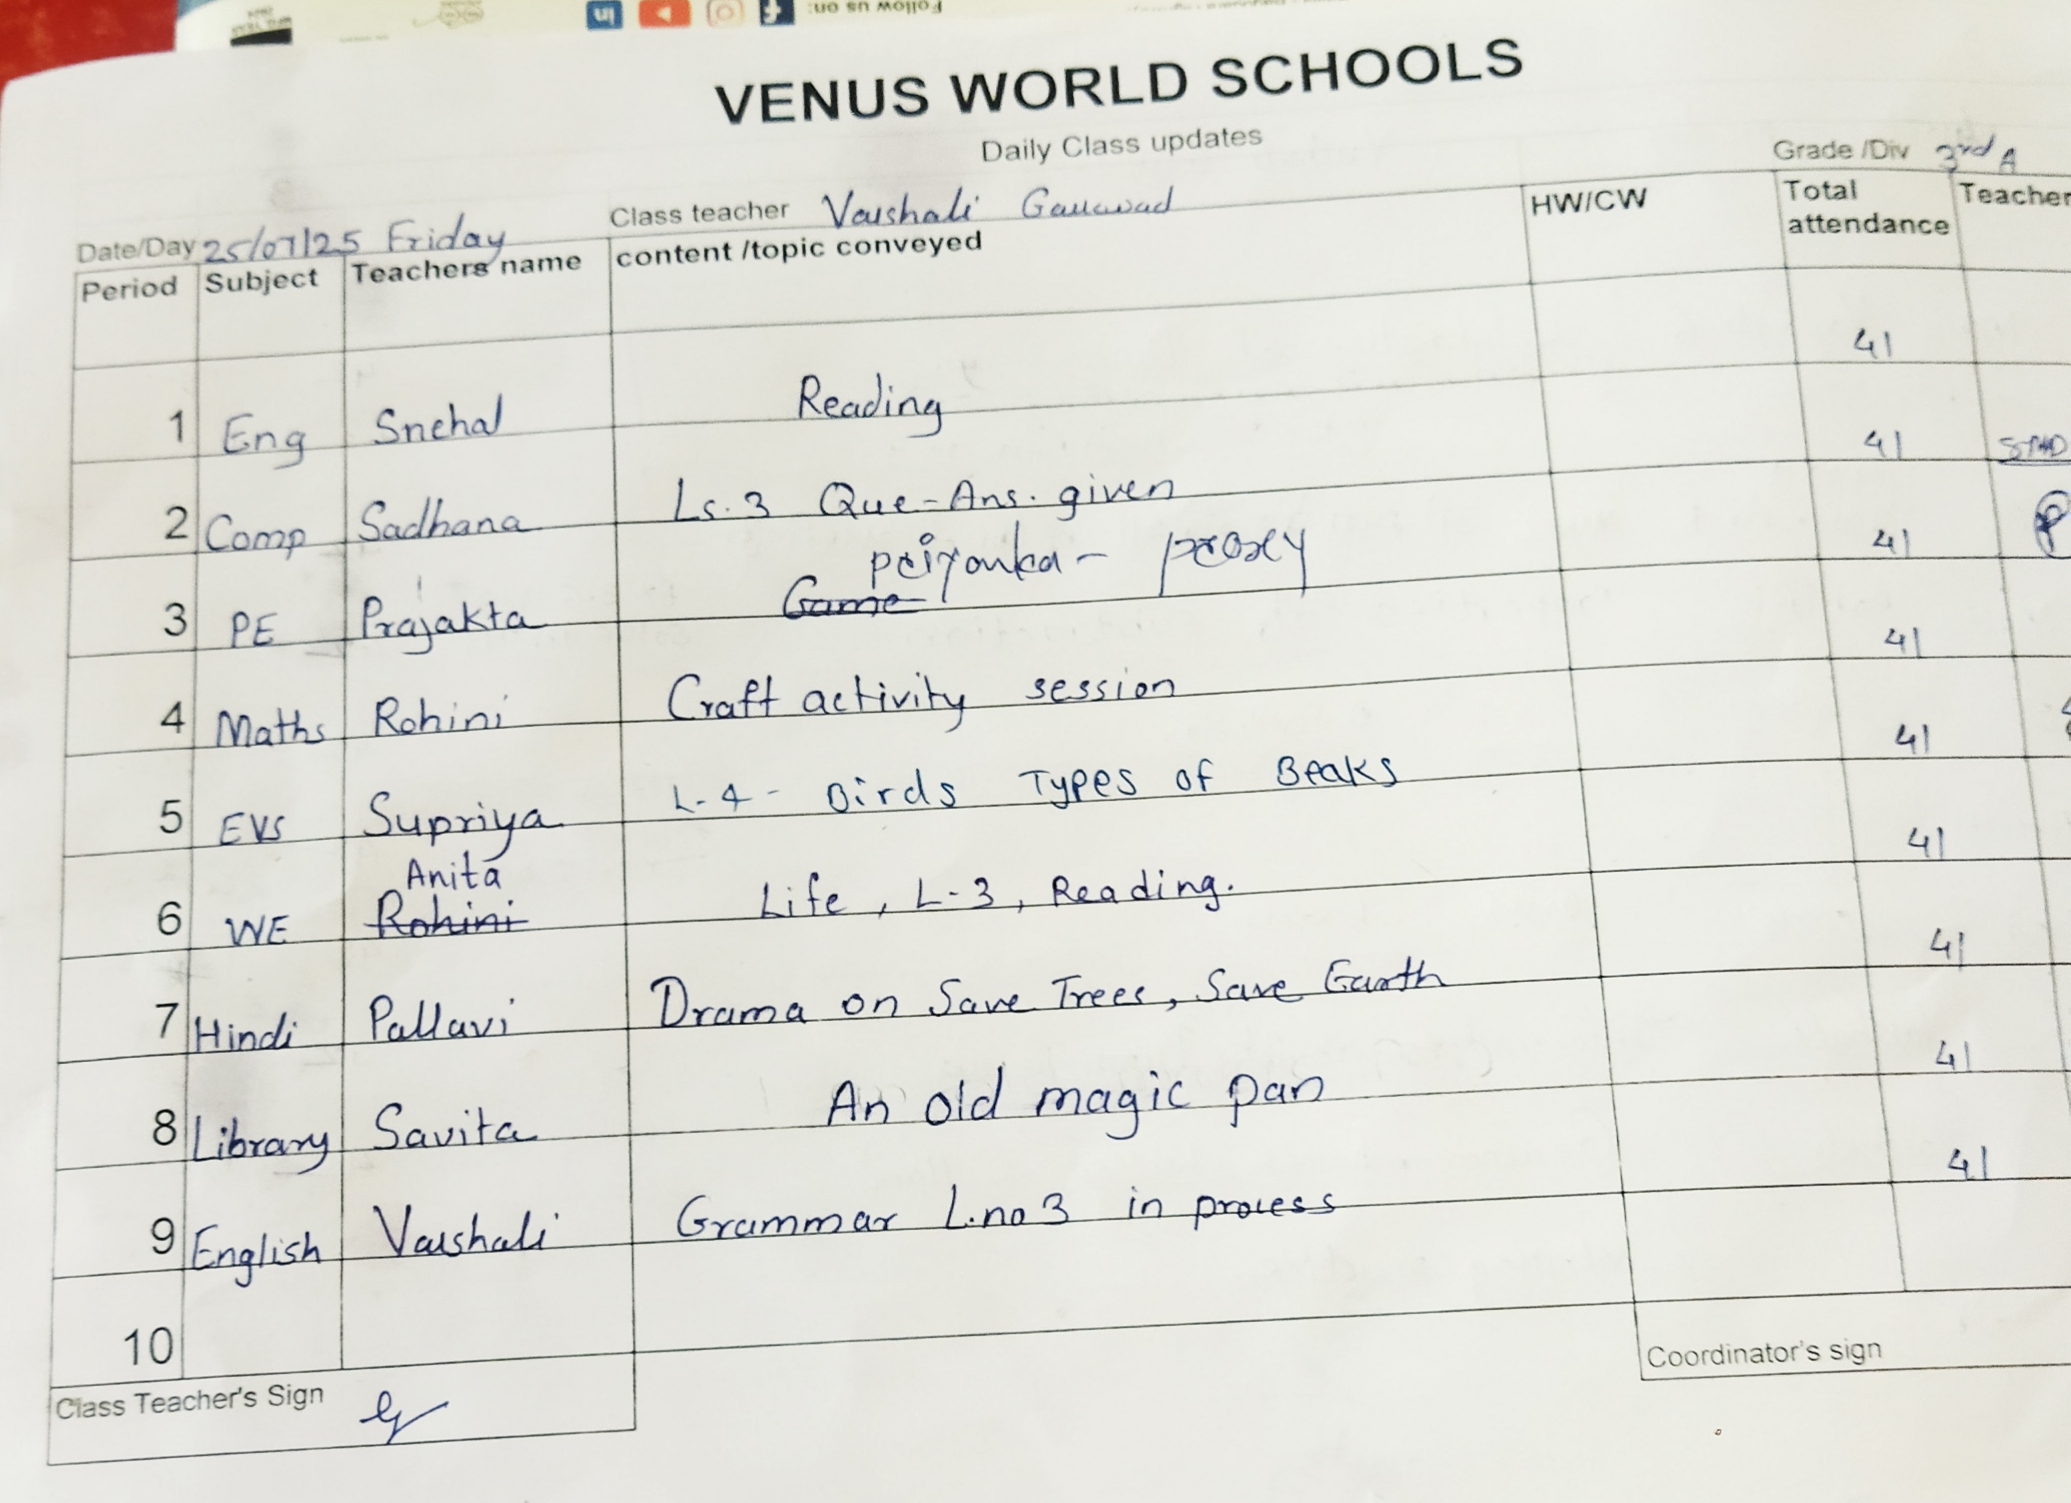 Follow us on:
VENUS WORLD SCHOOLS
Daily Class updates
Grade /Div 3rd A
Date/Day 25/07/25 Friday Class teacher Vaishali Gaikwad
Period Subject Teachers name content /topic conveyed HW/CW Total attendance Teacher
1 Eng Snehal Reading 41
2 Comp Sadhana Ls. 3 Que-Ans. given 41
Priyanka - proxy
3 PE Prajakta Game 41
4 Maths Rohini Craft activity session 41
5 EVS Supriya L-4- Birds Types of Beaks 41
Anita
6 WE Rohini Life, L-3, Reading. 41
7 Hindi Pallavi Drama on Save Trees, Save Earth 41
8 Library Savita An old magic pan 41
9 English Vaishali Grammar L.no 3 in process 41
10
Class Teacher's Sign
Coordinator's sign